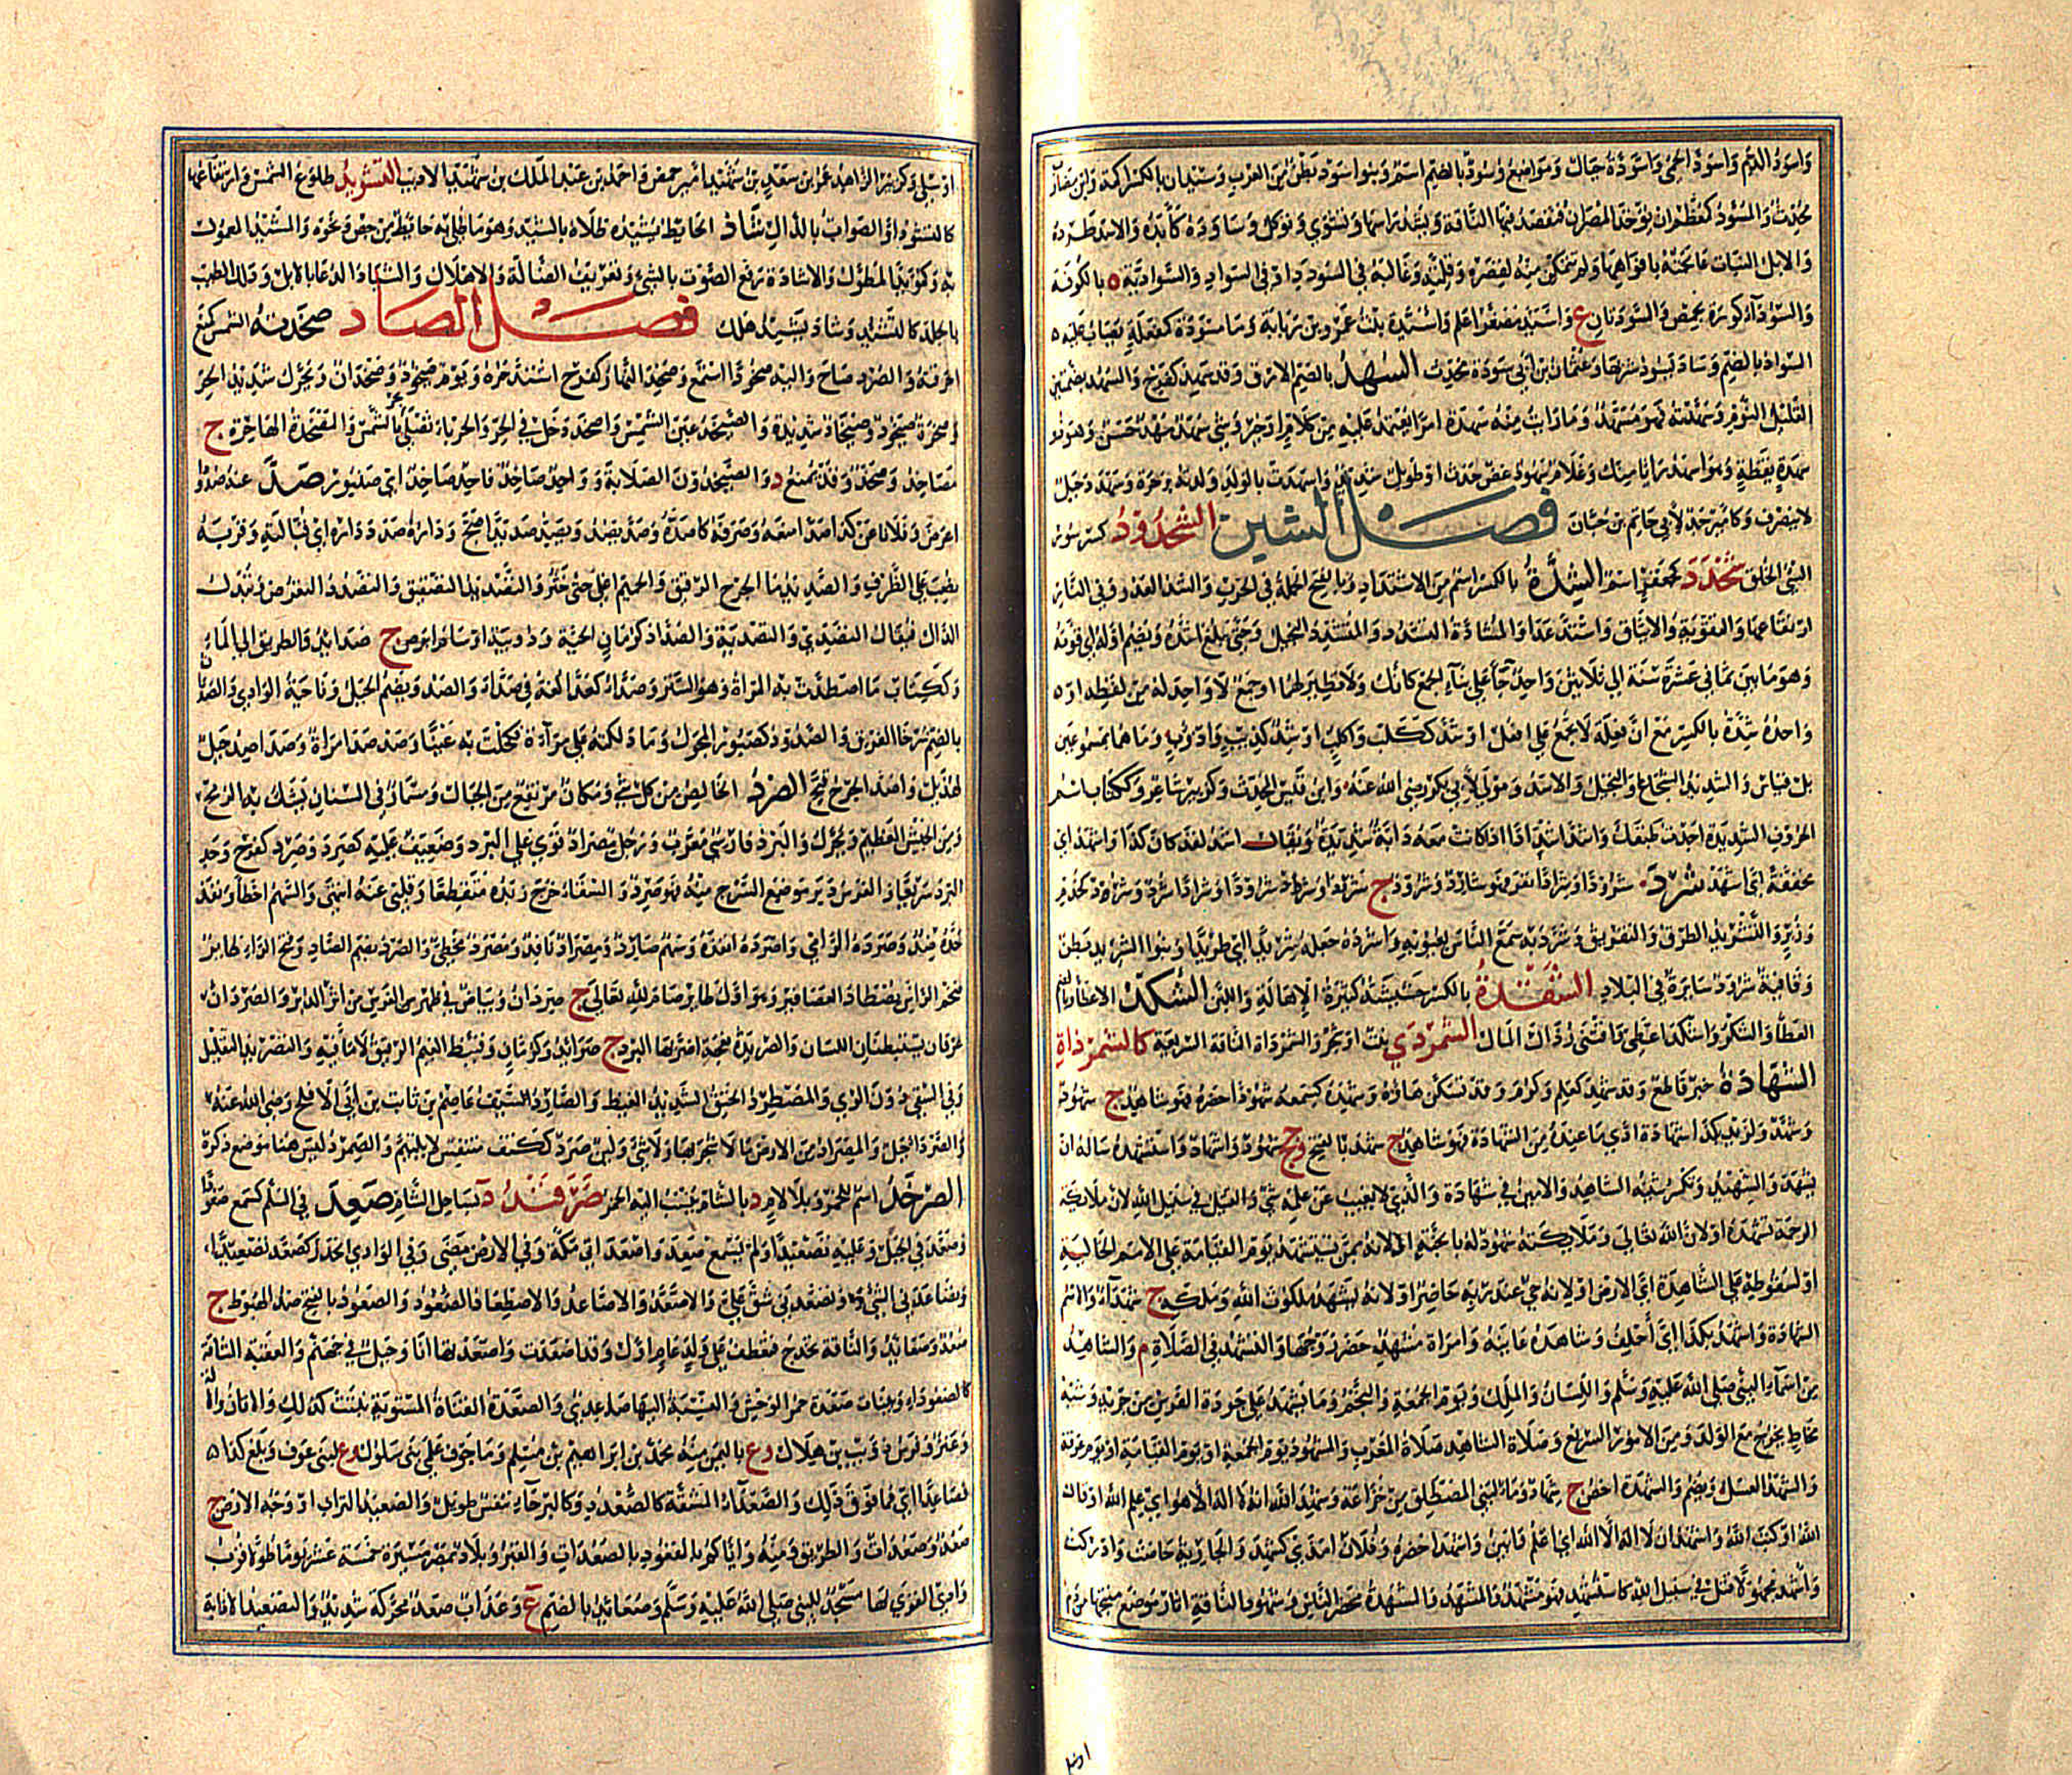 واسود الدم واسود الحمى واسودة جبال ومواضع وسود بالضم اسم وبنوا سود بطن من العرب وسيدان بالكسر اكمة وابن مضارب
محدث والمسود كمعظم ان يؤخذ المصران فتفصد فيها الناقة ويشد راسها وتشوى وتوكل وساوده كابده والاسد طرده
والابل النبات عالجته بافواهها ولم تتمكن منه لقصره وقلته وغالبه في السودد او في السواد والسوادية ه بالكوفة
والسوداء كورة بحمص والسودتان ع واسيد مصغرا علم واسيدة بنت عمرو بن ربابة وما مسودة كمفعلة يصاب عليه ه
السواد بالضم وساد يسود شربها وعثمان بن ابي سودة محدث السهد بالضم الارق وقد سهد كفرح والسهد بضمتين
القليل النوم وسهدته فهو مسهد وما رايت منه سهدة امرا يعتمد عليه من كلام او خير وشئ سهد مهد حسن وهو ذو
سهدة يقظة وهو اسهد رايا منك وغلام سهود غض حدث او طويل شديد واسهدت بالولد ولدته بزحرة وسهدد جبل
لا ينصرف وكاميرجد لابي حاتم بن حبان فصل الشين الشحدود كسرسور
السيئ الخلق شخدد كجعفر اسم الشدة بالكسر اسم من الاشتداد وبالفتح الحملة في الحرب والشد العدو وفي النار
ارتفاعها والتقوية والايثاق واشتد عدا والمشادة التشدد والمتشدد البخيل وحتى يبلغ اشده ويضم اوله اي قوته
وهو ما بين ثماني عشرة سنة الى ثلاثين واحد جاء على بناء الجمع كآنك ولا نظير لهما او جمع لا واحد له من لفظه او ه
واحده شدة بالكسر مع ان فعلة لا تجمع على افعل او شد ككلب واكلب او شد كذئب واذؤب وما هما بمسموعين
بل قياس والشديد الشجاع والبخيل والاسد ومولى لابي بكر رضي الله عنه وابن قيس المحدث وكزبير شاعر وككتاب اسم
الحروف الشديدة اجدت طبقك واشد اشدادا اذا كانت معه دابة شديدة ويقال اشد لقد كان كذا واشهد اي
مخففة اي اشهد شرد شرودا وشرادا نفر فهو شارد وشرود ج شرد
وزبر والتشريد الطرد والتفريق وشرد به سمع الناس بعيوبه واشرده جعله شريدا اي طريدا وبنوا الشريد بطن
وقافية شرود سائرة في البلاد الشقدة بالكسر حشيشة كثيرة الاهالة واللبن الشكد الاعطاء وبالضم
العطاء والشكر واشكد اعطى واقتنى رذال المال الشمردى نبت او شجر والشمرداة الناقة السريعة كالشمرذاة
الشهادة خبر قاطع وقد شهد كعلم وكرم وقد تسكن هاؤه وشهده كسمعه شهودا حضره فهو شاهد ج شهود
وشهد ولزيد بكذا شهادة ادى ما عنده من الشهادة فهو شاهد ج شهد بالفتح وجج شهود واشهاد واستشهده ساله ان
يشهد والشهيد وتكسر شينه الشاهد والامين في شهادة والذي لا يغيب عن علمه شئ والقتيل في سبيل الله لان ملائكة
الرحمة تشهده او لان الله تعالى وملائكته شهود له بالجنة او لانه ممن يستشهد يوم القيامة على الامم الخالية
او لسقوطه على الشاهدة اي الارض او لانه حي عند ربه حاضر او لانه يشهد ملكوت الله وملكه ج شهداء والاسم
الشهادة واشهد بكذا اي احلف وشاهده عاينه وامراة مشهد حضر زوجها والتشهد في الصلاة م والشاهد
من اسماء النبي صلى الله عليه وسلم واللسان والملك ويوم الجمعة والنجم وما يشهد على جودة الفرس من جريه وشبه
مخاط يخرج مع الولد ومن الامور السريع وصلاة الشاهد صلاة المغرب والمشهود يوم الجمعة او يوم القيامة او يوم عرفة
والشهد العسل ويضم والشهدة اخص ج شهاد وماء لبني المصطلق من خزاعة وشهد الله انه لا اله الا هو اي علم الله او قال
الله او كتب الله واشهد ان لا اله الا الله اي اعلم وابين واشهد احضره وفلان امذى كشهد والجارية حاضت وادركت
واشهد مجهولا قتل في سبيل الله كاستشهد فهو مشهد والمشهد والمشهدة محضر الناس وشهود الناقة اثار موضع منتجها من دم
اضل
او سلى وكزبير الزاهد عمر بن سعد بن شهيد امير حمص واحمد بن عبد الملك بن شهيد الاديب التشويد طلوع الشمس وارتفاعها
كالتشود او الصواب بالذال شاد الحائط يشيده طلاه بالشيد وهو ما طلي به حائط من جص ونحوه والمشيد المعمول
به وكمؤيد المطول والاشادة رفع الصوت بالشئ وتعريف الضالة والاهلاك والشياد الدعاء بالابل ودلك الطيب
بالجلد كالتشييد وشاد يشيد هلك فصل الصاد صخدته الشمس كمنع
احرقته والصرد صاح واليه صخودا استمع وصخد النهار كفرح اشتد حره ويوم صيخود وصخدان ويحرك شديد الحر
وصخرة صيخود وصيخاد شديدة والصيخد عين الشمس واصخد دخل في الحر والحرباء تصلى بحر الشمس والمصخدة الهاجرة ج
مصاخد وصخد وقد يمنع د والصيخدون الصلابة وواحد صاخد فاحد صاخد اي صنبور صد عنه صدودا
اعرض وفلانا عن كذا صدا منعه وصرفه كاصده وصد يصد ويصد صديدا ضج وداره صدد داره اي قبالته وقربه
نصب على الظرف والصديد ماء الجرح الرقيق والحميم اغلي حتى خثر والتصديد التصفيق والتصدد التعرض وتبدل
الدال فيقال التصدي والتصدية والصداد كرمان الحية ودويبة او سام ابرص ج صدائد والطريق الى الماء
وككتاب ما اصطدت به المراة وهو الستر وصداء كعداء لغة في صداء والصد ويضم الجبل وناحية الوادي والصدان
بالضم شرخا الفوق والصدود كصبور المجول وما دلكته على مرآة فكحلت به عينا وصدصد امراة وصداصد جبل
لهذيل واصد الجرح قيح الصرد الخالص من كل شئ ومكان مرتفع من الجبال ومسمار في السنان يشك به الرمح
ومن الجيش العظيم ويحرك والبرد فارسي معرب ورجل مصراد قوي على البرد وضعيف عليه كصرد وصرد كفرح وجد
البرد سريعا والفرس دبر موضع السرج منه فهو صرد والسقاء خرج زبده متقطعا وقلبي عنه انتهى والسهم اخطا ونفذ
حده ضد وصرده الرامي واصرده انفذه وسهم صارد ومصراد نافذ ومصرد مخطئ والصرد بضم الصاد وفتح الراء طائر
ضخم الراس يصطاد العصافير وهو اول طائر صام لله تعالى ج صردان وبياض في ظهر الفرس من اثر الدبر والصردان
عرقان يستبطنان اللسان والصريدة نعجة اضر بها البرد ج صرائد وكرمان وقبيط الغيم الرقيق لا ماء فيه والتصريد التقليل
وفي السقي دون الري والمصطرد الحنق الشديد الغيظ والصارد السيف عاصم بن ثابت بن ابي الاقلح رضي الله عنه
والصرد الجبل والمصراد من الارض ما لا شجر بها ولا شئ ولبن صرد ككتف منتفش لا يلتئم والصمرد ليس هنا موضع ذكره
الصرخد اسم للخمر وبلا لام د بالشام ينسب اليه الخمر صرفند د بساحل الشام صعد في السلم كسمع صعودا
وصعد في الجبل وعليه تصعيدا ولم يسمع صعد واصعد اتى مكة وفي الارض مضى وفي الوادي انحدر كصعد تصعيدا
وتصعدني الشئ وتصاعدني شق علي والاصعد والاصاعد والاصطعاد الصعود والصعود بالفتح ضد الهبوط ج
صعد وصعائد والناقة تخدج فتعطف على ولد عام اول وقد اصعدت واصعدتها انا وجبل في جهنم والعقبة الشاقة
كالصعوداء وبنات صعدة حمر الوحش والنسبة اليها صاعدي والصعدة القناة المستوية تنبت كذلك والاتان والالة
وعنز وفرس ذؤيب بن هلال وع باليمن منه محمد بن ابراهيم بن مسلم وماء جوف علمي بني سلول وع لبني عوف وبلغ كذا ه
فصاعدا اي فما فوق ذلك والصعداء المشقة كالصعدد وكالبرحاء تنفس طويل والصعيد التراب او وجه الارض ج
صعد وصعدات والطريق ومنه واياكم والقعود بالصعدات والقبر وبلاد بمصر مسيرة خمسة عشر يوما طولا وع قرب
وادي القرى لها مسجد للنبي صلى الله عليه وسلم وصعائد بالضم ع وعذاب صعد محركة شديد والتصعيد الاذابة